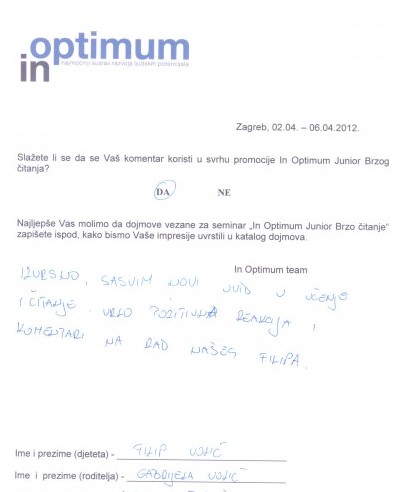 in optimum
najmoćniji sustav razvoja ljudskih potencijala
Zagreb, 02.04. – 06.04.2012.
Slažete li se da se Vaš komentar koristi u svrhu promocije In Optimum Junior Brzog
čitanja?
DA NE
Najljepše Vas molimo da dojmove vezane za seminar „In Optimum Junior Brzo čitanje“
zapišete ispod, kako bismo Vaše impresije uvrstili u katalog dojmova.
In Optimum team
IZVRSNO, SASVIM NOVI UVID U UČENJE
I ČITANJE. VRLO POZITIVNA REAKCIJA I
KOMENTARI NA RAD NAŠEG FILIPA.
Ime i prezime (djeteta) - FILIP
Ime i prezime (roditelja) - GABRIJELA